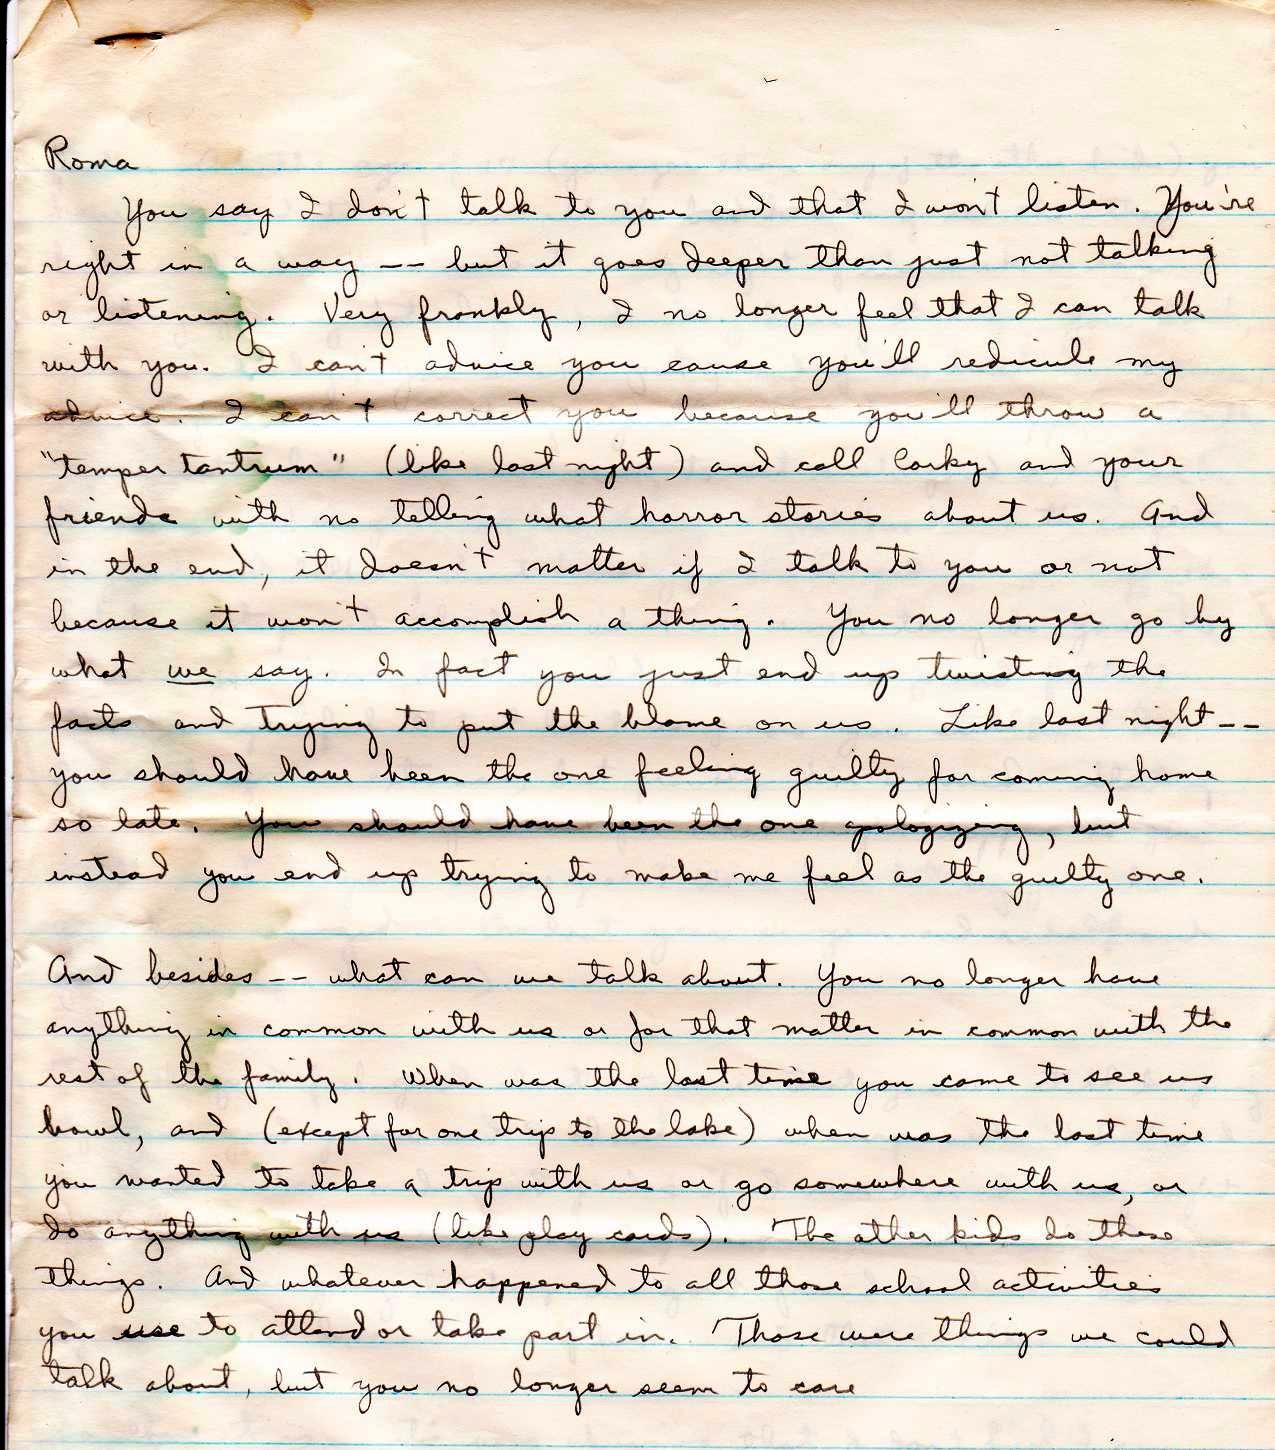 Roma
You say I don't talk to you and that I won't listen. You're
right in a way -- but it goes deeper than just not talking
or listening. Very frankly, I no longer feel that I can talk
with you. I can't advice you cause you'll redicule my
advice. I can't correct you because you'll throw a
"temper tantrum" (like last night) and call Corky and your
friends with no telling what horror stories about us. And
in the end, it doesn't matter if I talk to you or not
because it won't accomplish a thing. You no longer go by
what we say. In fact you just end up twisting the
facts and trying to put the blame on us. Like last night--
you should have been the one feeling guilty for coming home
so late. You should have been the one apologizing, but
instead you end up trying to make me feel as the guilty one.
And besides -- what can we talk about. You no longer have
anything in common with us or for that matter in common with the
rest of the family. When was the last time you came to see us
bowl, and (except for one trip to the lake) when was the last time
you wanted to take a trip with us or go somewhere with us, or
do anything with us (like play cards). The other kids do these
things. And whatever happened to all those school activities
you use to attend or take part in. Those were things we could
talk about, but you no longer seem to care